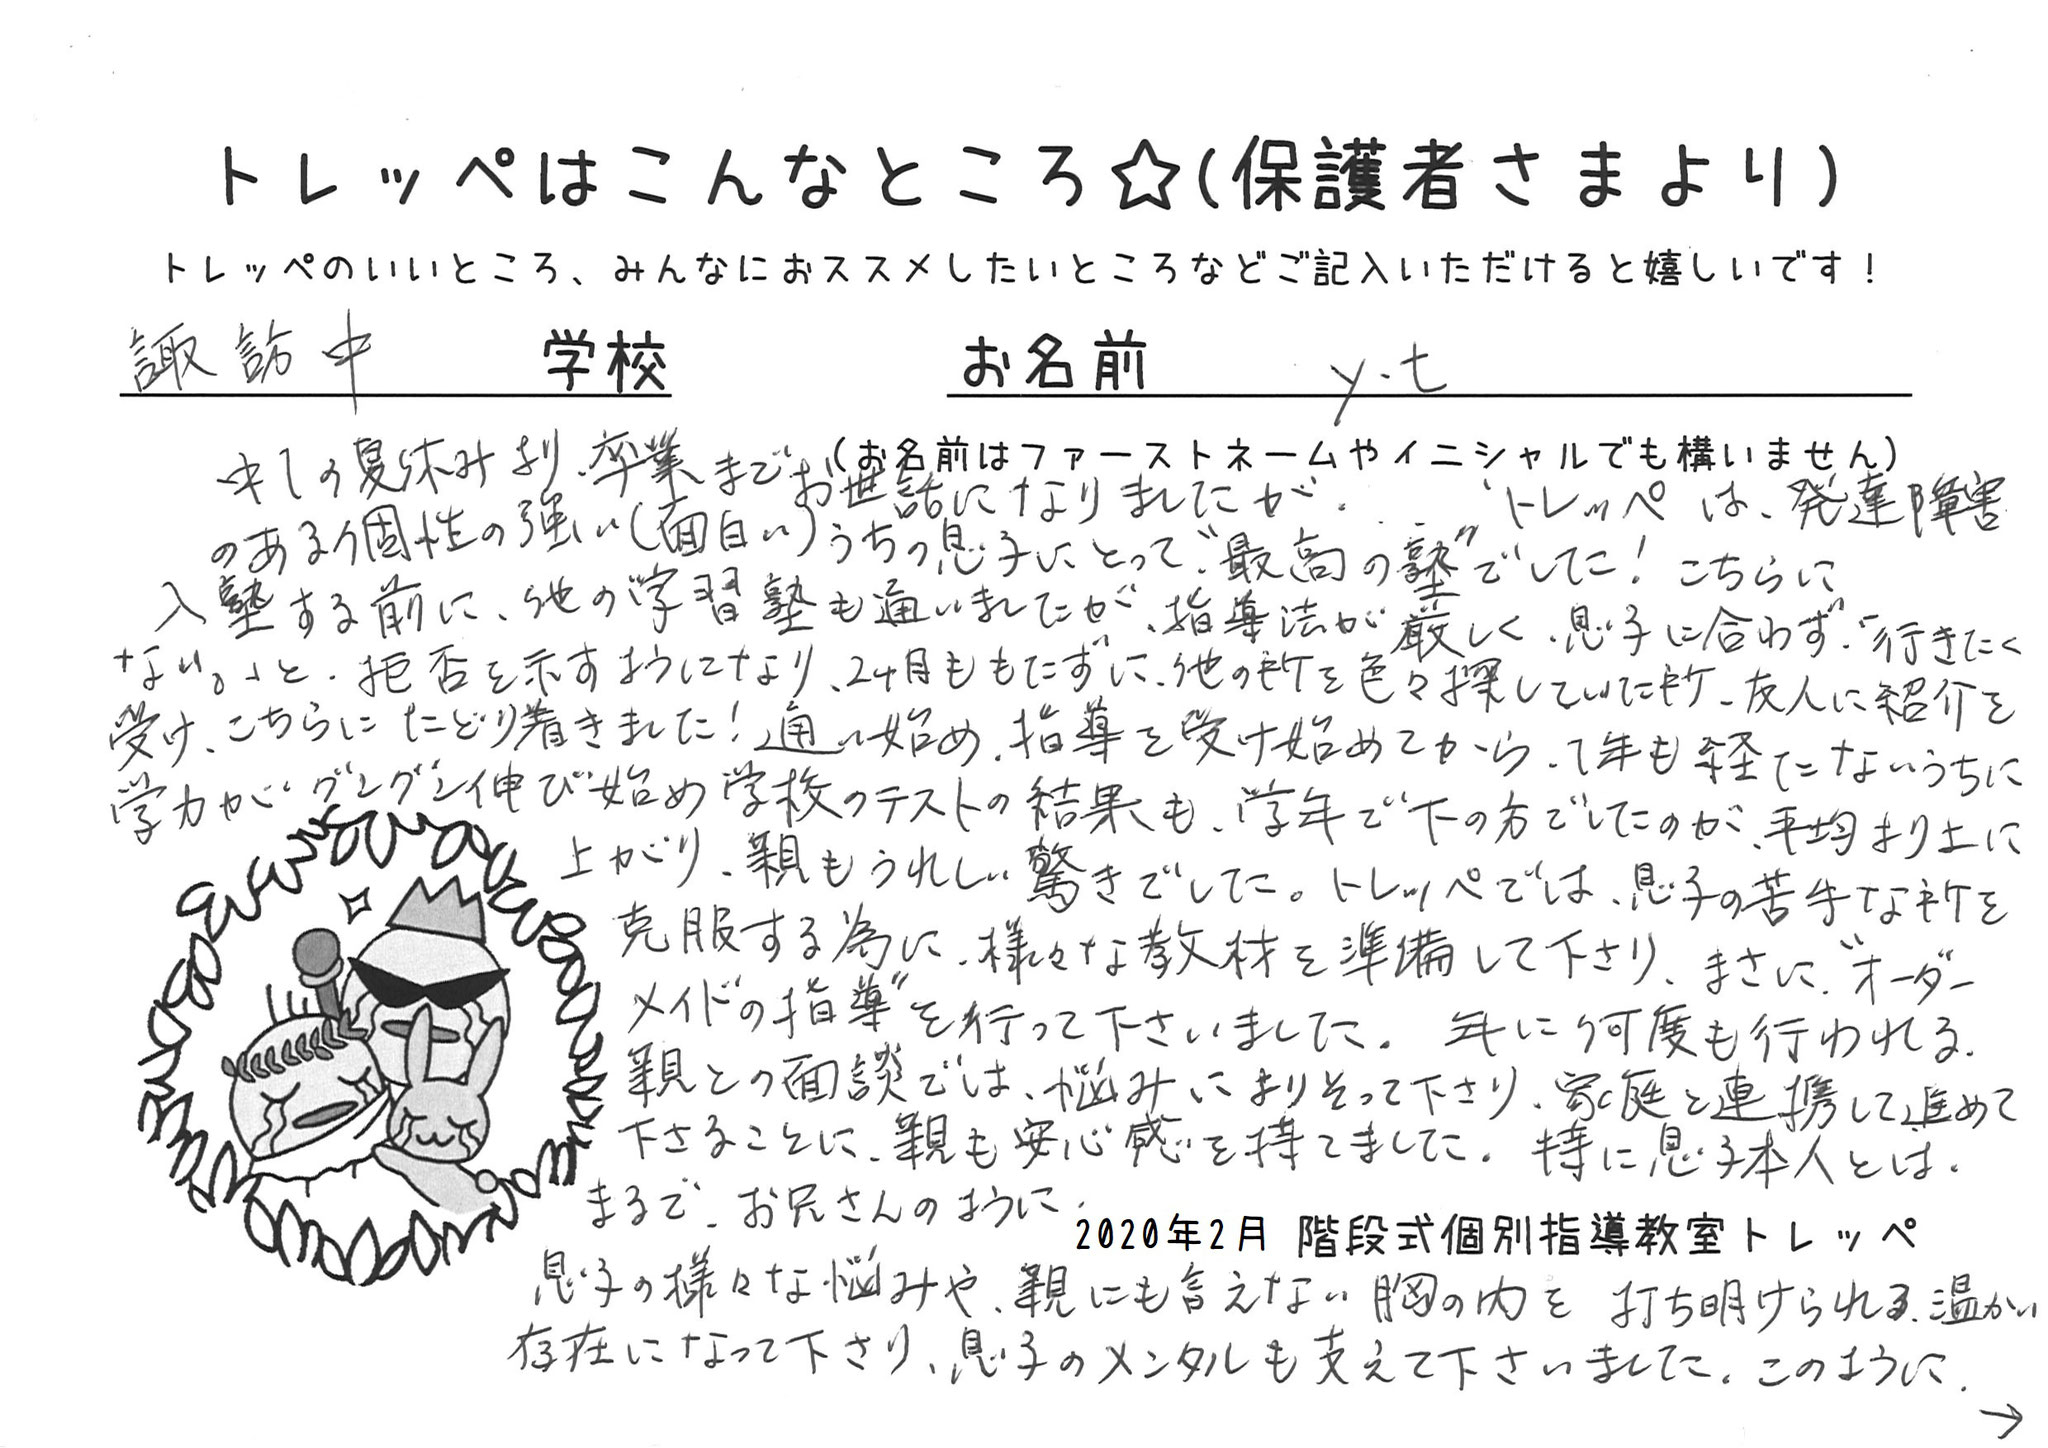 トレッペはこんなところ☆(保護者さまより)
トレッペのいいところ、みんなにおススメしたいところなどご記入いただけると嬉しいです!
諏訪中 学校 お名前 y.t
(お名前はファーストネームやイニシャルでも構いません)
中1の夏休みより、卒業までお世話になりましたが、トレッペは、発達障害
のある個性の強い(面白い)うちの息子にとって、"最高の塾"でした! こちらに
入塾する前に、他の学習塾も通いましたが、指導法が厳しく、息子に合わず、「行きたく
ない。」と、拒否を示すようになり、2ヶ月ももたずに、他の所を色々探していた所、友人に紹介を
受け、こちらにたどり着きました! 通い始め、指導を受け始めてから、1年も経たないうちに
学力がグングン伸び始め学校のテストの結果も、学年で下の方でしたのが、平均より上に
上がり、親もうれしい驚きでした。トレッペでは、息子の苦手な所を
克服する為に、様々な教材を準備して下さり、まさに、"オーダー
メイドの指導"を行って下さいました。年に何度も行われる、
親との面談では、悩みによりそって下さり、家庭と連携して進めて
下さることに、親も安心感を持てました。特に息子本人とは、
まるで、お兄さんのように、
2020年2月 階段式個別指導教室トレッペ
息子の様々な悩みや、親にも言えない胸の内を 打ち明けられる、温かい
存在になって下さり、息子のメンタルも支えて下さいました。このように、
→